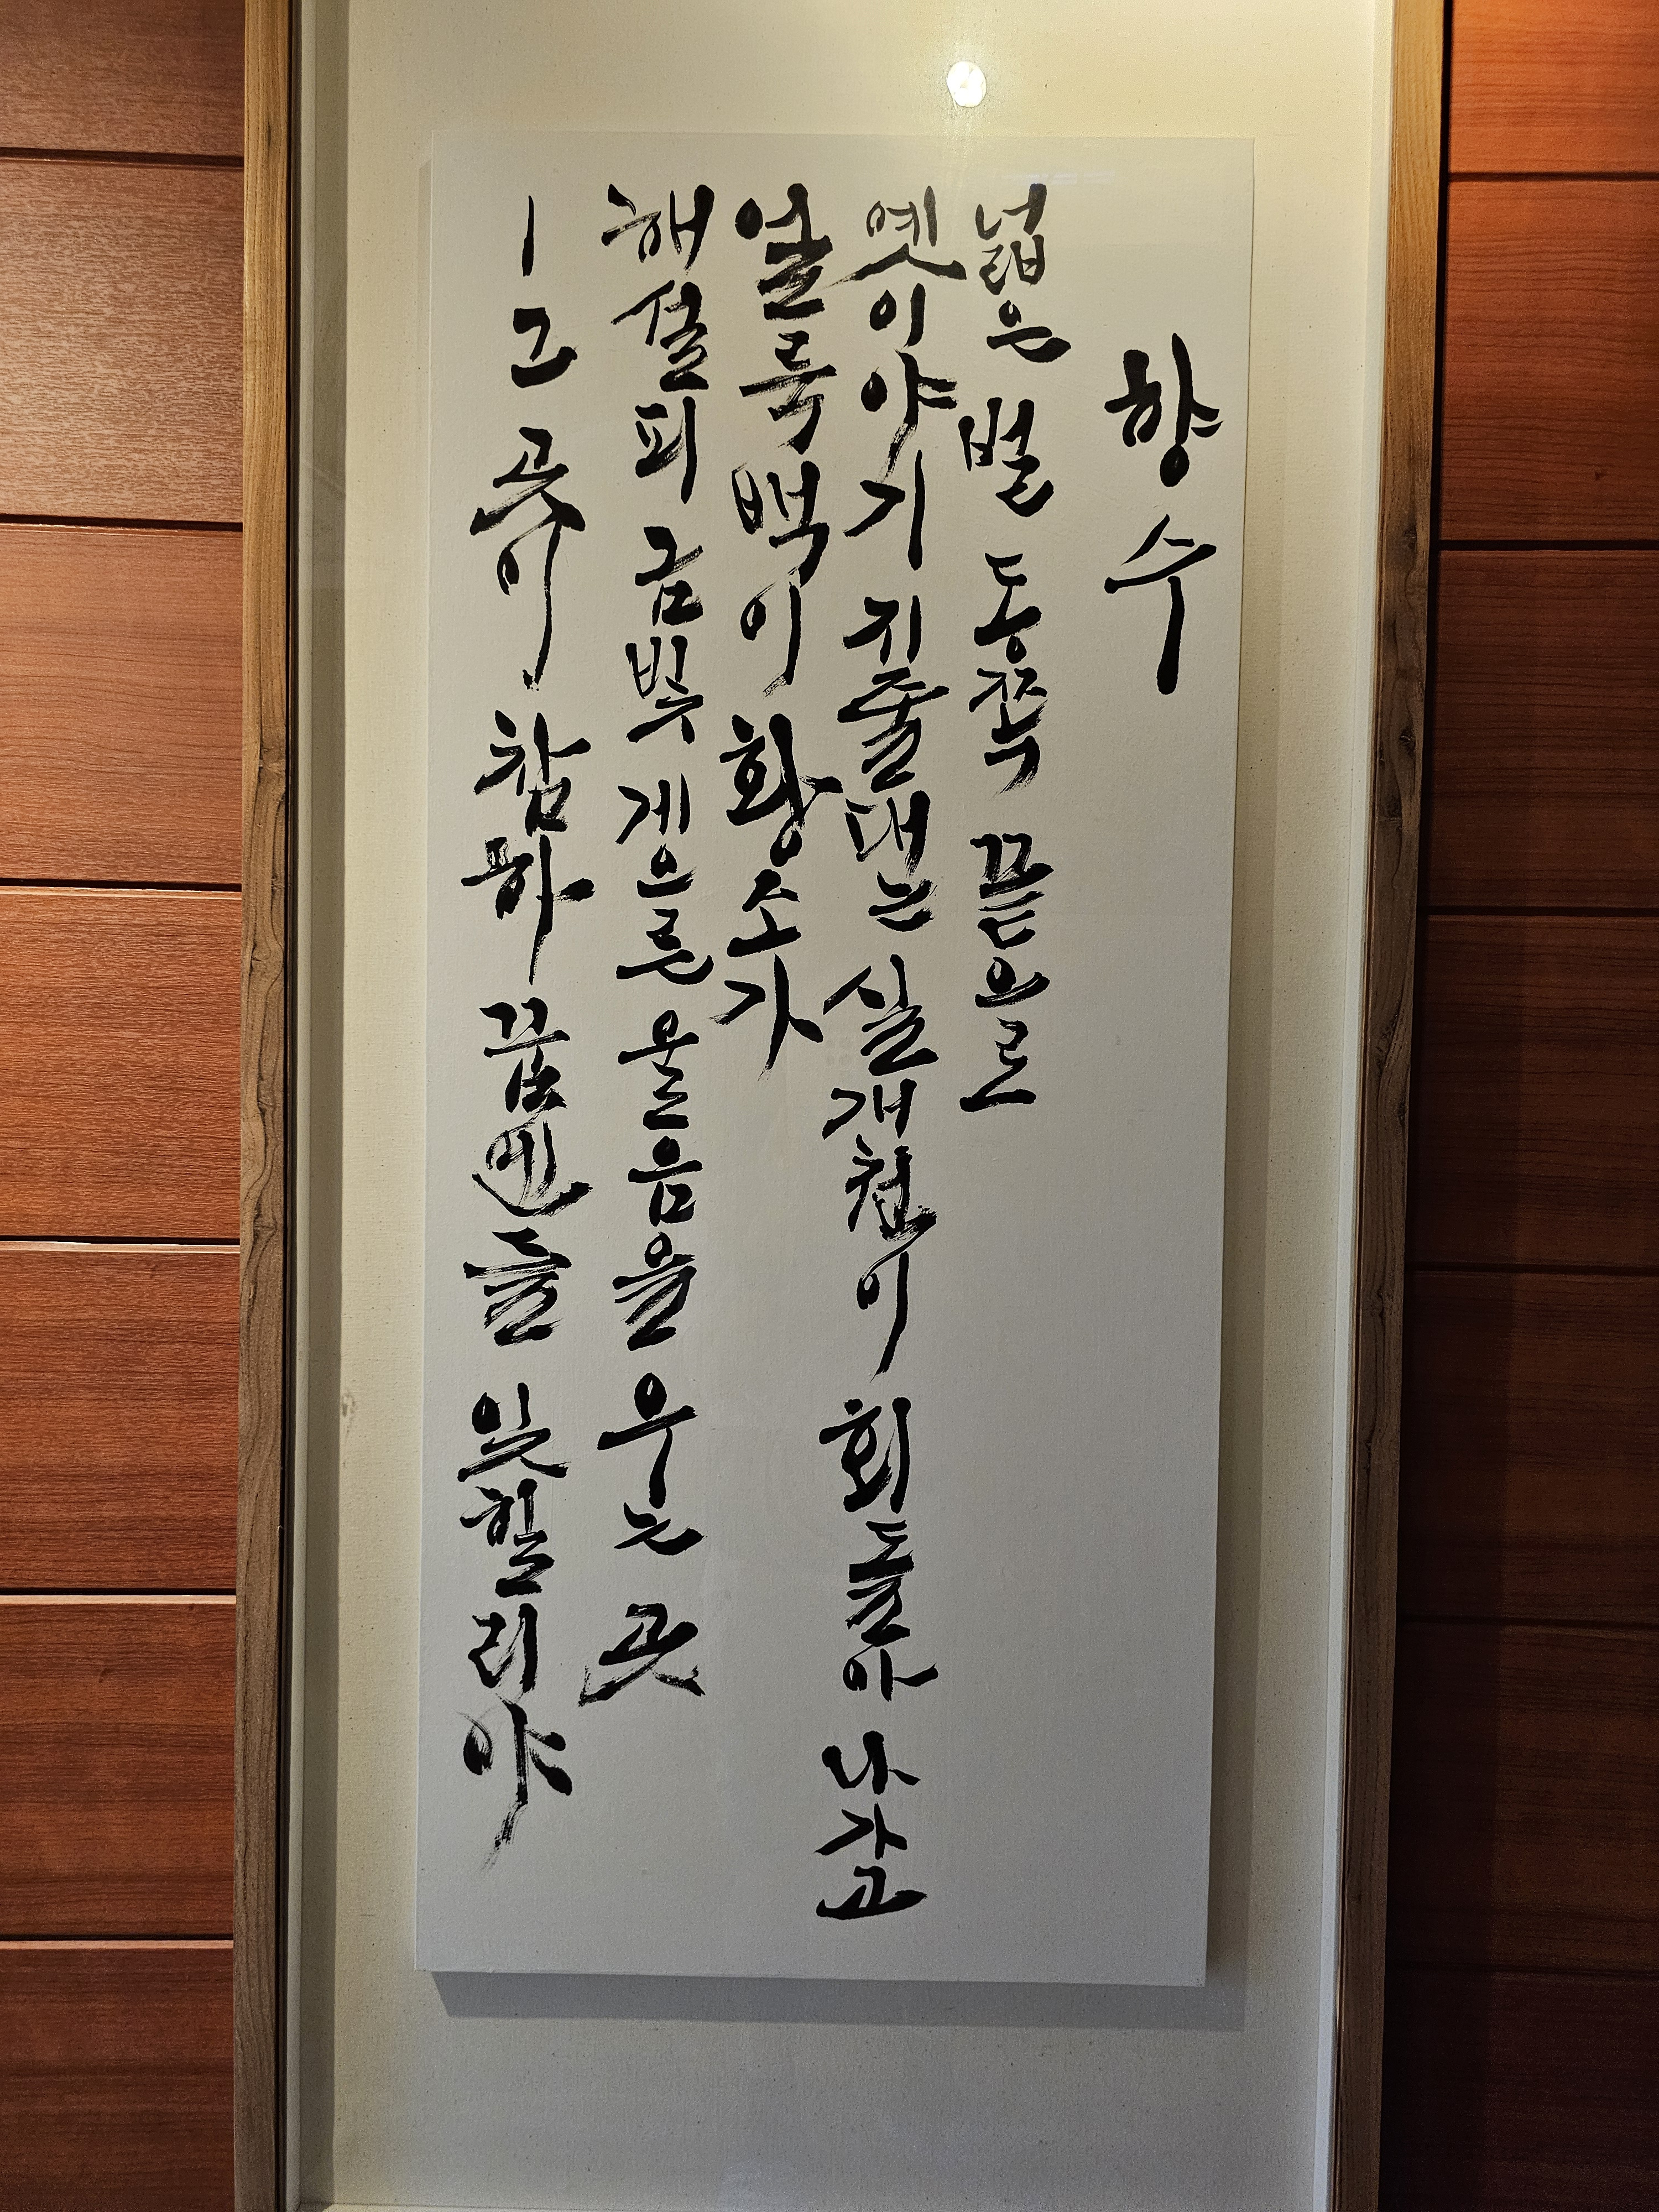 향수
넓은 벌 동쪽 끝으로
옛이야기 지줄대는 실개천이 회돌아 나가고
얼룩백이 황소가
해설피 금빛 게으른 울음을 우는 곳
ㅣ그 곳이 참하 꿈엔들 잊힐리야